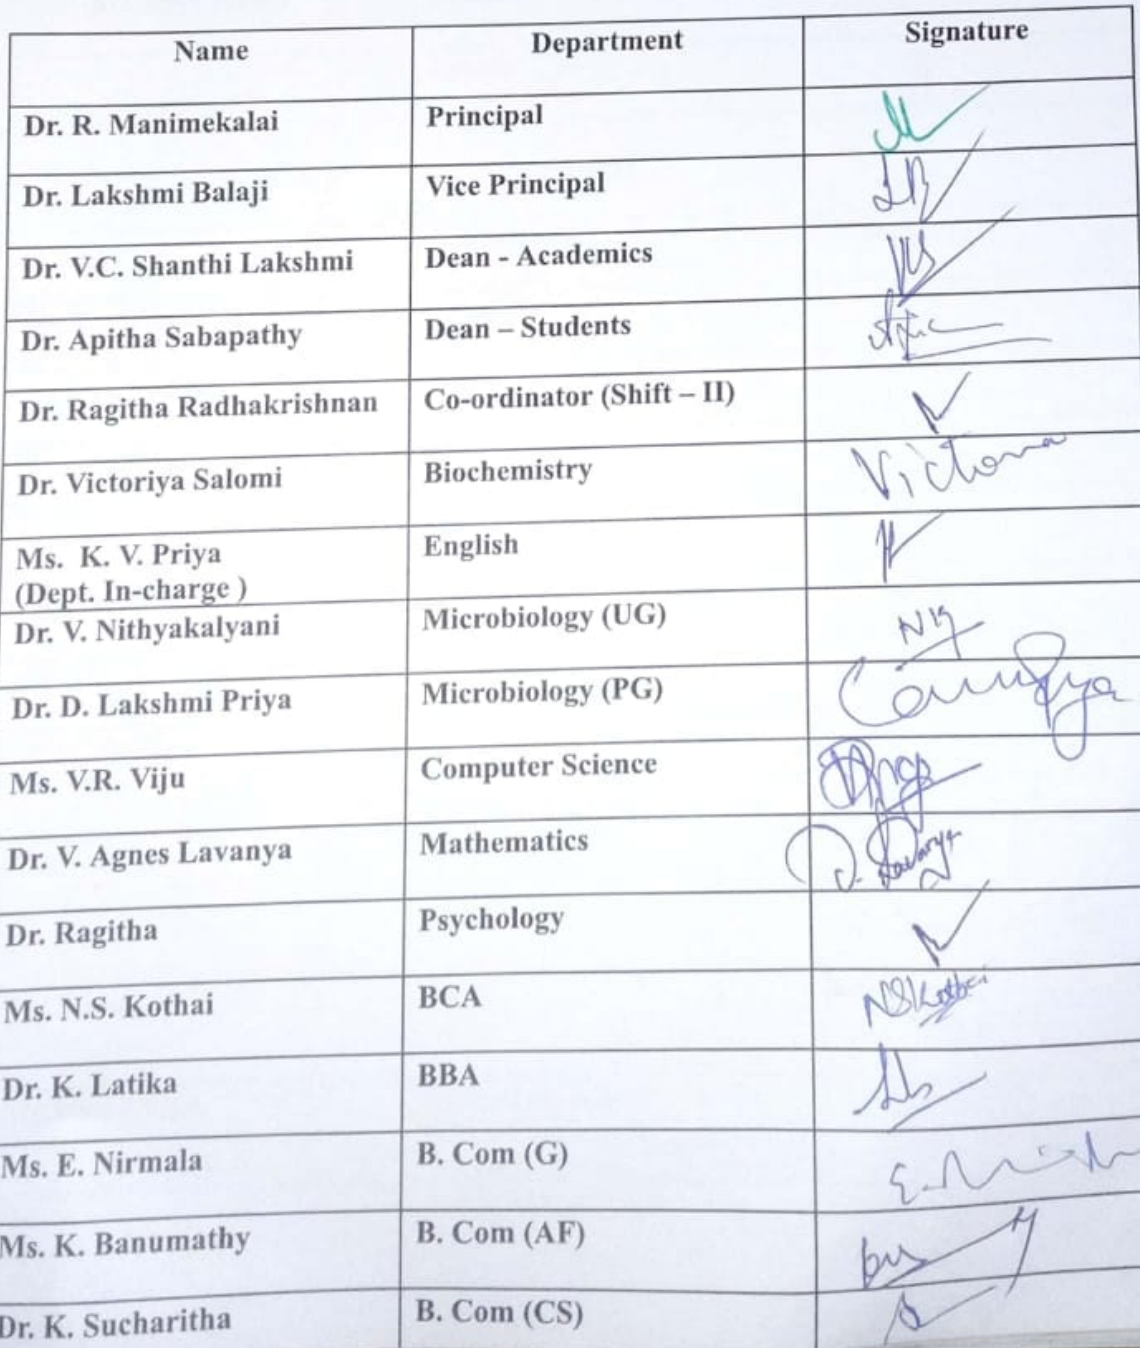 Name Department Signature
Dr. R. Manimekalai Principal
Dr. Lakshmi Balaji Vice Principal
Dr. V.C. Shanthi Lakshmi Dean - Academics
Dr. Apitha Sabapathy Dean – Students
Dr. Ragitha Radhakrishnan Co-ordinator (Shift – II)
Dr. Victoriya Salomi Biochemistry Victoria
Ms. K. V. Priya English
(Dept. In-charge )
Dr. V. Nithyakalyani Microbiology (UG)
Dr. D. Lakshmi Priya Microbiology (PG)
Ms. V.R. Viju Computer Science
Dr. V. Agnes Lavanya Mathematics
Dr. Ragitha Psychology
Ms. N.S. Kothai BCA NSKothai
Dr. K. Latika BBA
Ms. E. Nirmala B. Com (G)
Ms. K. Banumathy B. Com (AF)
Dr. K. Sucharitha B. Com (CS)